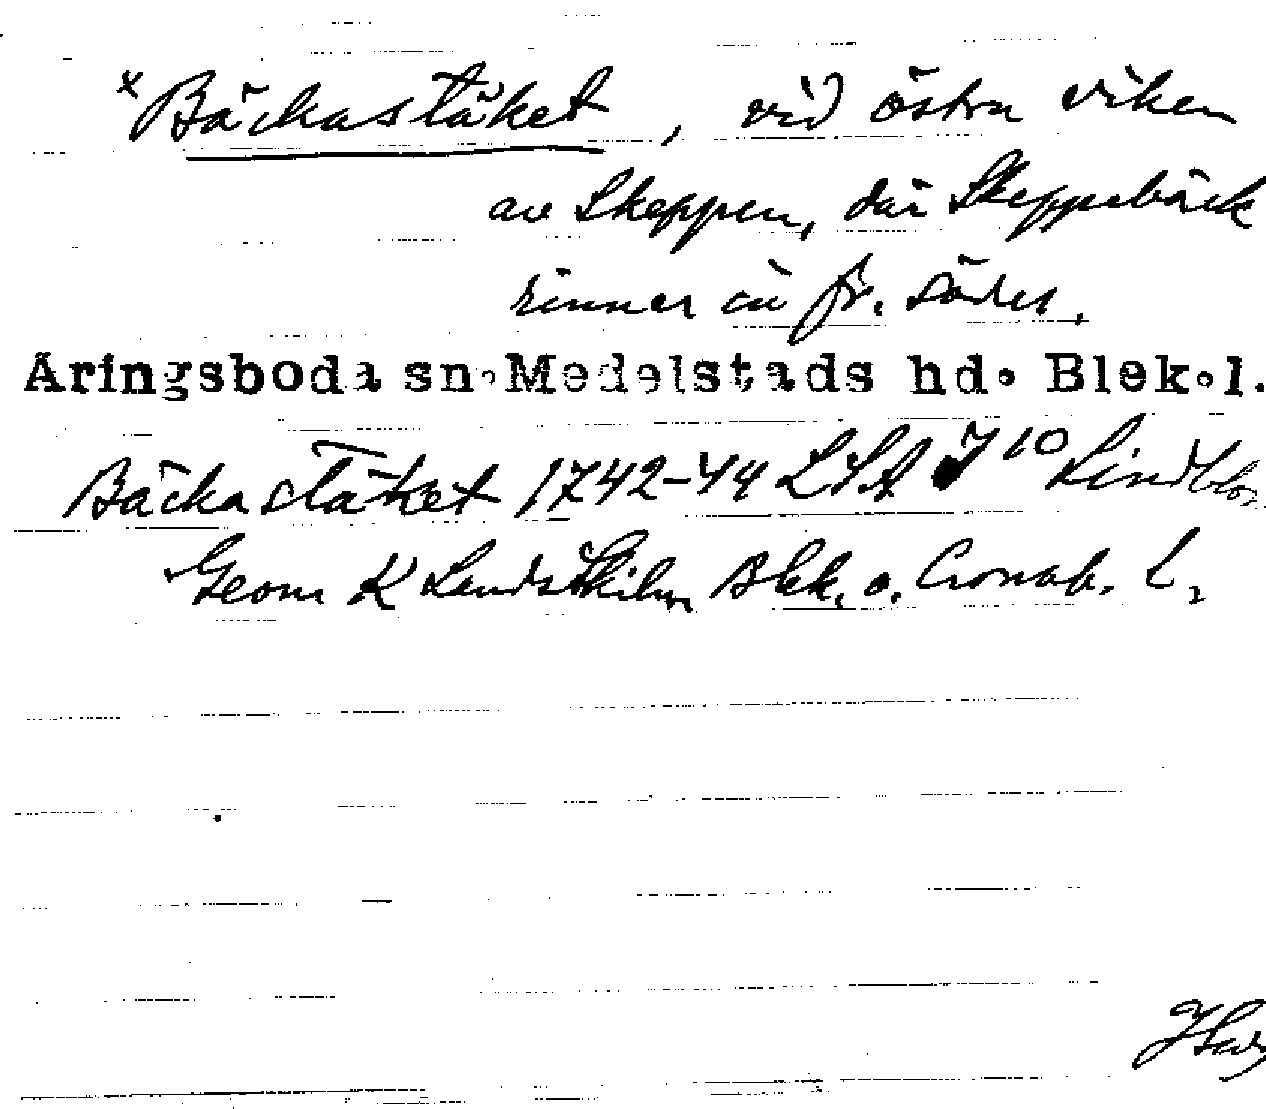 x Bäckastäket, vid östra viken
av Skeppen, där Skeppsbäck
rinner in fr. söder.
Äringsboda sn. Medelstads hd. Blek.l.
Bäckastäket 1742-44 LSA J 10 Lindblo
Geom K Landskilm Blek. o. Cronob. L